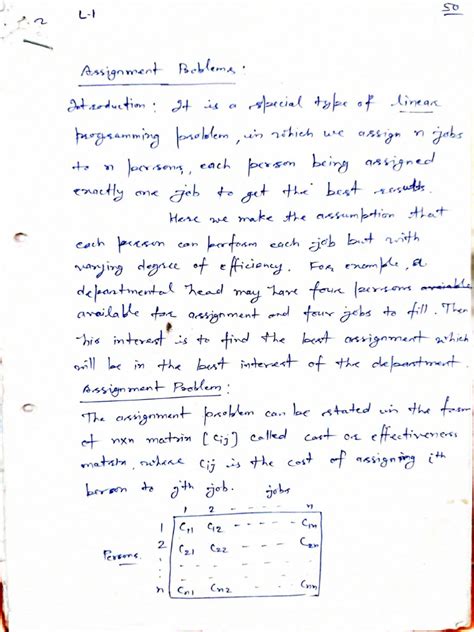 2
L-1
50
Assignment Problems:
Introduction: It is a special type of linear
programming problem, in which we assign n jobs
to n persons, each person being assigned
exactly one job to get the best results.
Here we make the assumption that
each person can perform each job but with
varying degree of efficiency. For example, a
departmental head may have four persons available
available for assignment and four jobs to fill. Then
his interest is to find the best assignment which
will be in the best interest of the department.
Assignment Problem:
The assignment problem can be stated in the form
of nxn matrix [cij] called cost or effectiveness
matrix, where cij is the cost of assigning ith
person to jth job. jobs
1 2 - - - - - n
1 C11 C12 - - - - - C1n
2 C21 C22 - - - - C2n
Persons
n Cn1 Cn2 - - - - Cnn